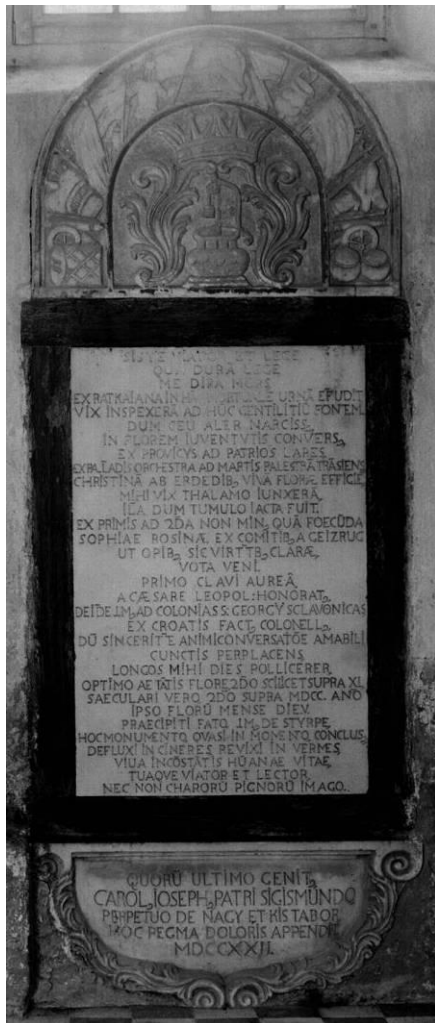 SISTE VIATOR ET LEGE
QUA DURA LEGE
ME DIRA MORS
EX PATRAIANA IN HĀC MORTUALE URNĀ EFUDIT
VIX INSPEXERĀ AD HUC GENTILITIŪ FONTEM
DUM CEU ALER NARCISS,
IN FLOREM IUVENTVTIS CONVERS,
EX PROVICYS AD PATRIOS LARES
EX PALADIS ORCHESTRA AD MARTIS PALESTRĀ TRĀSIENS
CHRISTINĀ AB ERDEDIB, VIVĀ FLORÆ EFFIGIE
MIHI VIX THALAMO IUNXERĀ
ILLA DUM TUMULO IACTA FUIT.
EX PRIMIS AD 2DA NON MIN, QUĀ FOECŪDA
SOPHIAE ROSINÆ, EX COMITIB, A GEIZRUG
UT OPIB, SIC VIRTTB, CLARÆ,
VOTA VENI.
PRIMO CLAVI AUREĀ
A CÆSARE LEOPOL: HONORAT,
DEIDE IM, AD COLONIAS S: GEORGY SCLAVONICAS
EX CROATIS FACT, COLONELL,
DŪ SINCERITTE ANIMI CONVERSATŌE AMABILI
CUNCTIS PERPLACENS
LONGOS MIHI DIES POLLICERER
OPTIMO AETATIS FLORE 2DO SCILICET SUPRA XL
SAECULARI VERO 2DO SUPRA MDCC. ANO
IPSO FLORŪ MENSE DIEV
PRAECIPITI FATO IM, DE STYRPE
HOC MONUMENTO QVASI IN MOMENTO CONCLUS,
DEFLUXI IN CINERES REVIXI IN VERMES
VIVA INCŌSTĀTIS HŪANAE VITAE
TUAQVE VIATOR ET LECTOR
NEC NON CHARORŪ PIGNORŪ IMAGO.
QUORŪ ULTIMO GENIT,
CAROL, IOSEPH, PATRI SIGISMUNDO
PERPETUO DE NAGY ET KIS TABOR
HOC PEGMA DOLORIS APPENDIT
MDCCXXII.